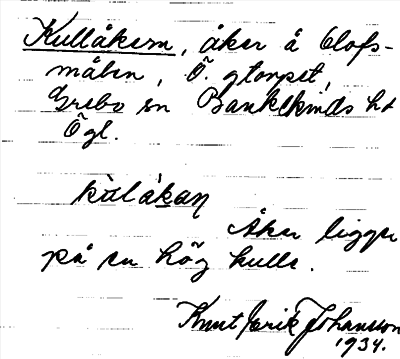 Kullåkern, åker å Olofs-
målen, Ö. gtorpet,
Grebo sn Bankekinds hd
Ögl.
kùlåkaṇ
Åker ligger
på en hög kulle.
Knut Erik Johansson
1934.